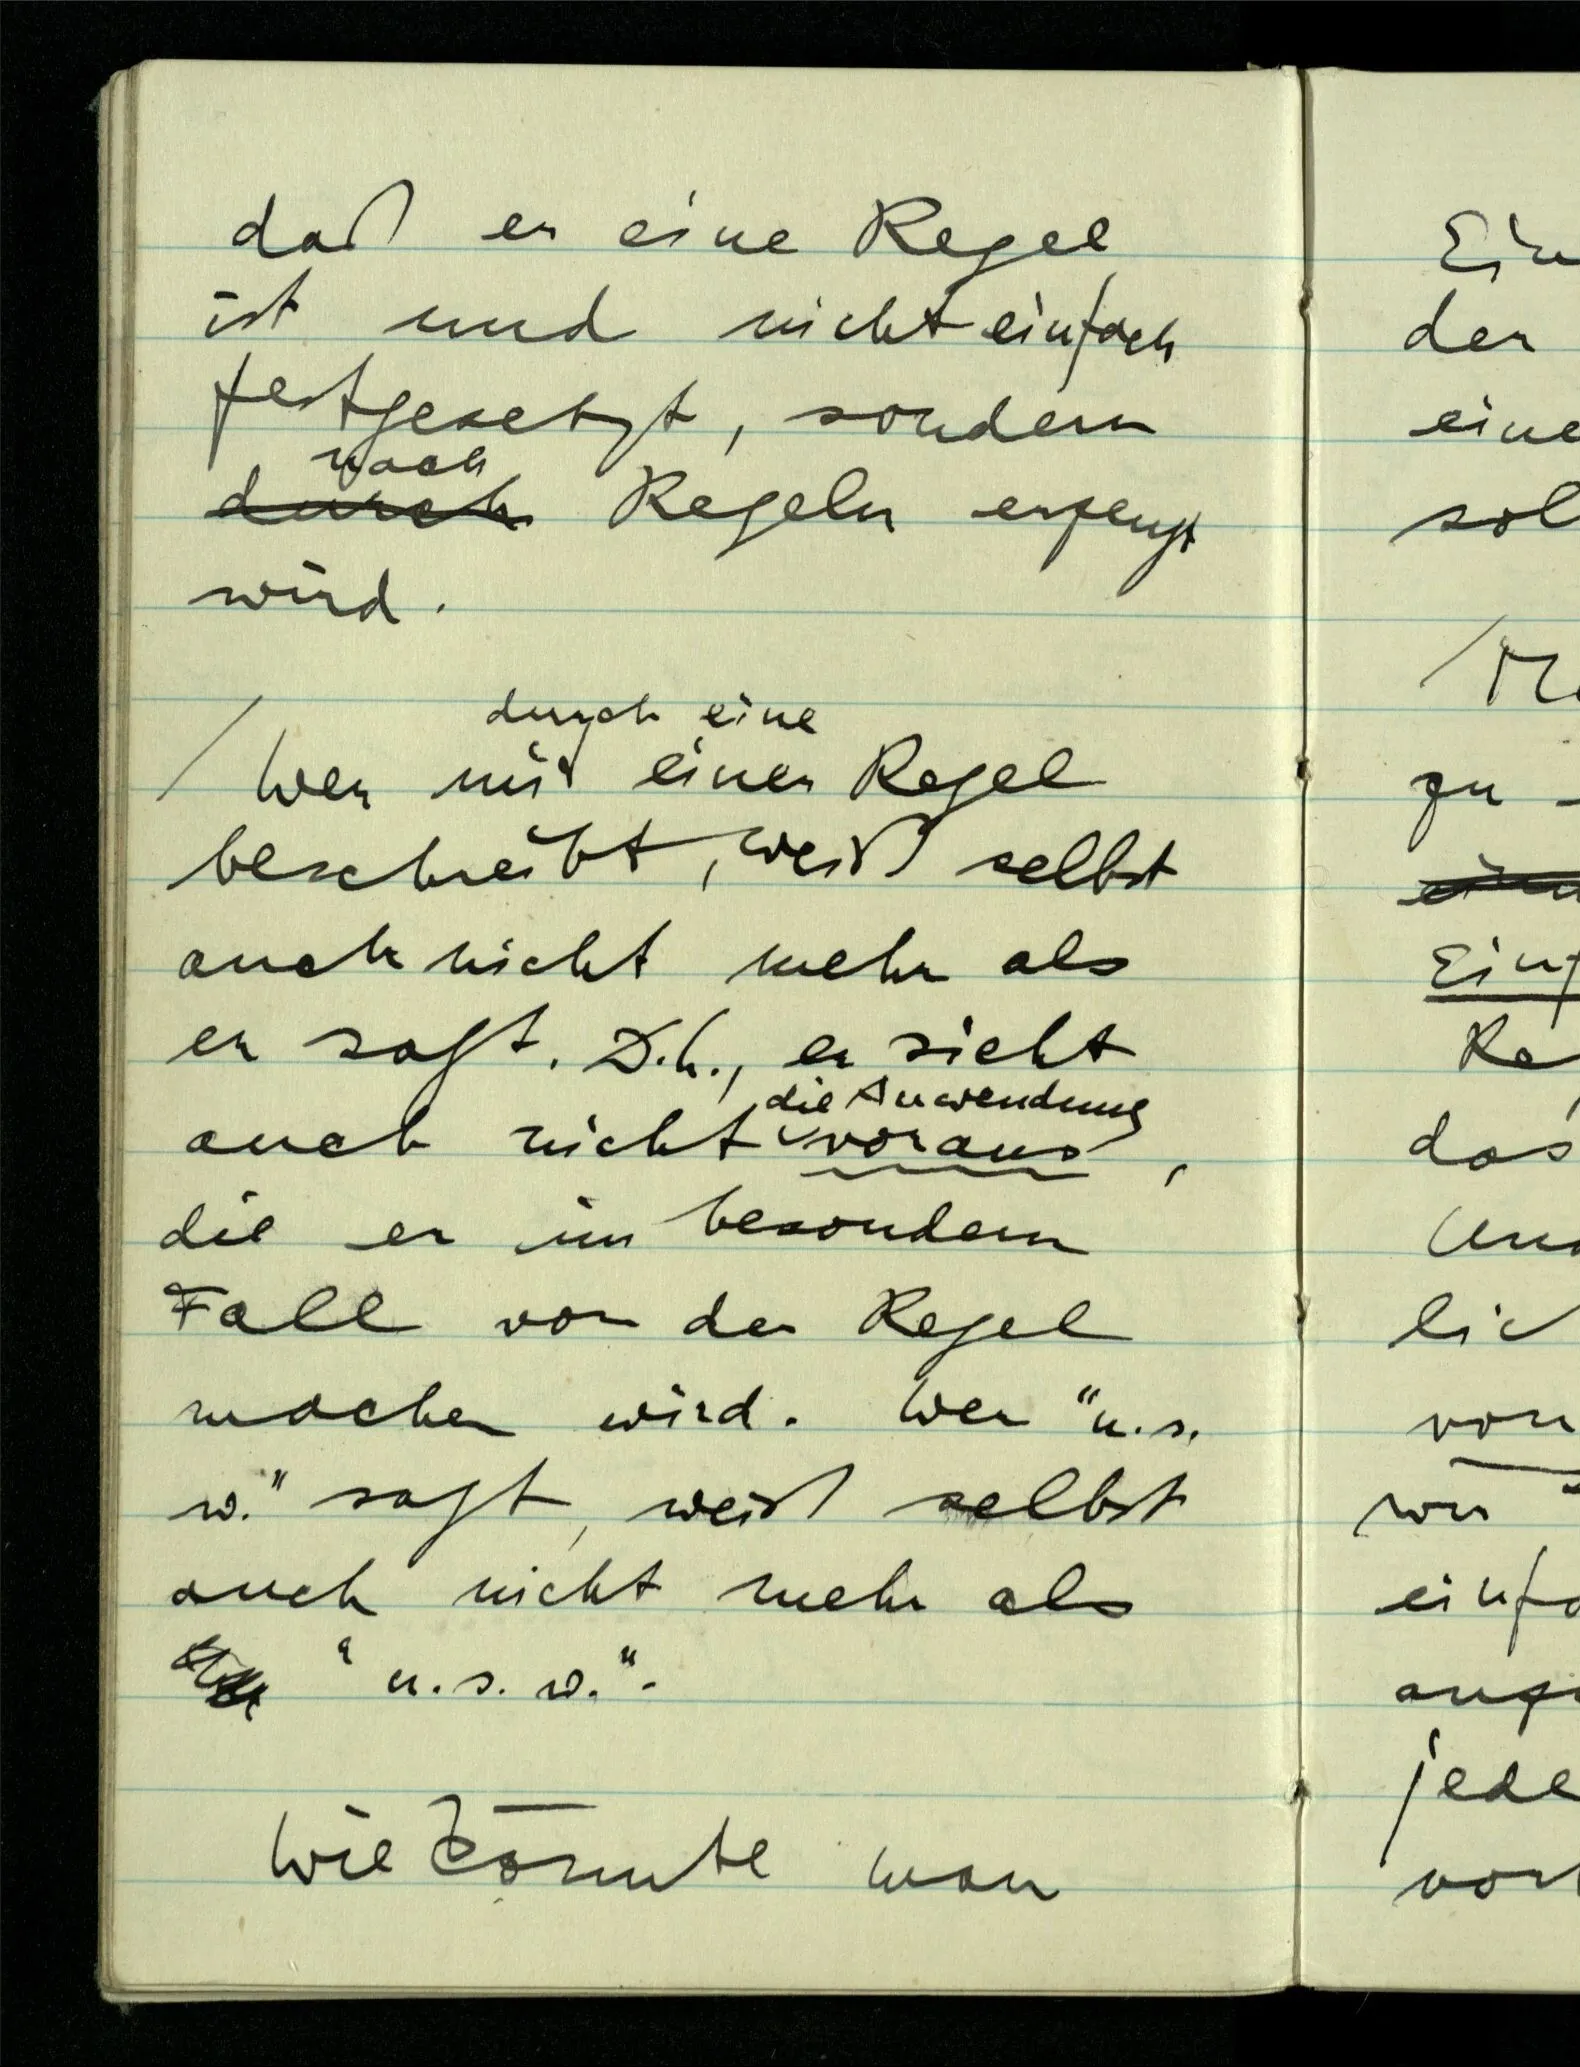 daß er eine Regel
ist und nicht einfach
festgesetzt, sondern
nach
durch Regeln erzeugt
wird.
durch eine
/ Wer mit einer Regel
beschreibt, weiß selbst
auch nicht mehr als
er sagt. D.h., er sieht
die Anwendung
auch nicht voraus,
die er im besondern
Fall von der Regel
machen wird. Wer "u.s.
w." sagt, weiß selbst
auch nicht mehr als
"u.s.w.".
Wie könnte man
der
eine
sol
/
zu
das
lic
von
wir
einfa
jede